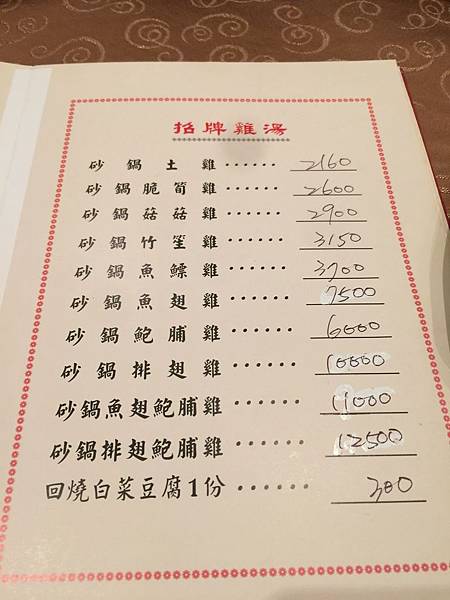 招牌雞湯
砂鍋土雞⋯⋯ 2160
砂鍋脆筍雞⋯⋯ 2600
砂鍋菇菇雞⋯⋯ 2900
砂鍋竹笙雞⋯⋯ 3150
砂鍋魚鰾雞⋯⋯ 3700
砂鍋魚翅雞⋯⋯ 7500
砂鍋鮑脯雞⋯⋯ 6000
砂鍋排翅雞⋯⋯ 10000
砂鍋魚翅鮑脯雞⋯⋯ 11000
砂鍋排翅鮑脯雞⋯⋯ 12500
回燒白菜豆腐1份⋯⋯ 300